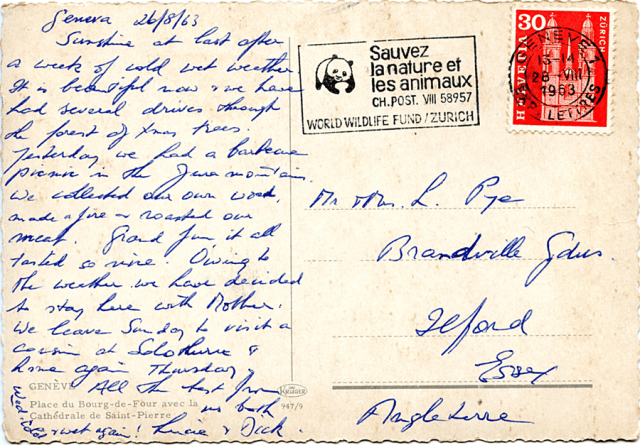 Geneva 26/8/63
Sunshine at last after
a week of cold wet weather
It is beautiful now & we have
had several drives through
the forest of Xmas trees.
Yesterday we had a barbecue
picnic in the Jura mountains.
We collected our own wood,
made a fire & roasted our
meat. Grand fun, it all
tasted so nice. Owing to
the weather we have decided
to stay here with Mother.
We leave Sunday to visit a
cousin at Solothurn &
home again Thursday
All the best from
us both
Wed.
& wet again! Lucie & Dick.
GENÈVE
Place du Bourg-de-Four avec la
Cathédrale de Saint-Pierre
KRÜGER
947/9
Sauvez
la nature et
les animaux
CH.POST. VIII 58957
WORLD WILDLIFE FUND / ZURICH
30
HELVETIA
ZÜRICH
GENÈVE 1
13-14
28 VIII
1963
EXP. LETTRES
Mr & Mrs. L. Pye
Brandville Gdns.
Ilford
Essex
Angleterre